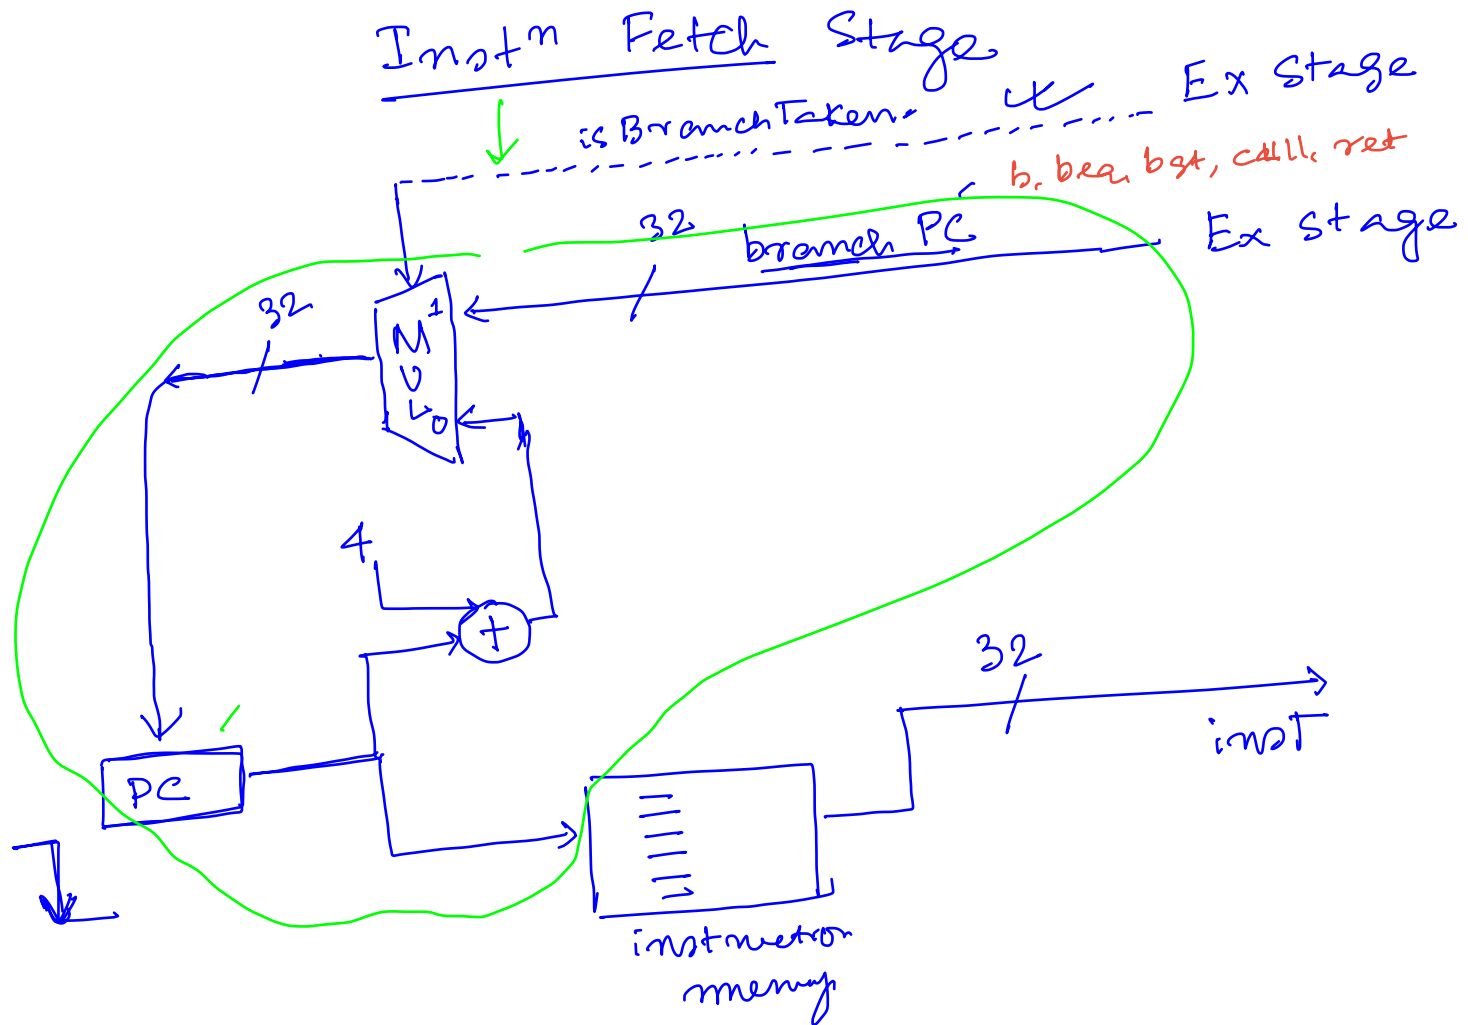 Instⁿ Fetch Stage
isBranchTaken
Ex Stage
b, beq, bgt, call, ret
32
branch PC
Ex Stage
32
1
M
U
X
0
4
+
32
inst
PC
instruction
memory